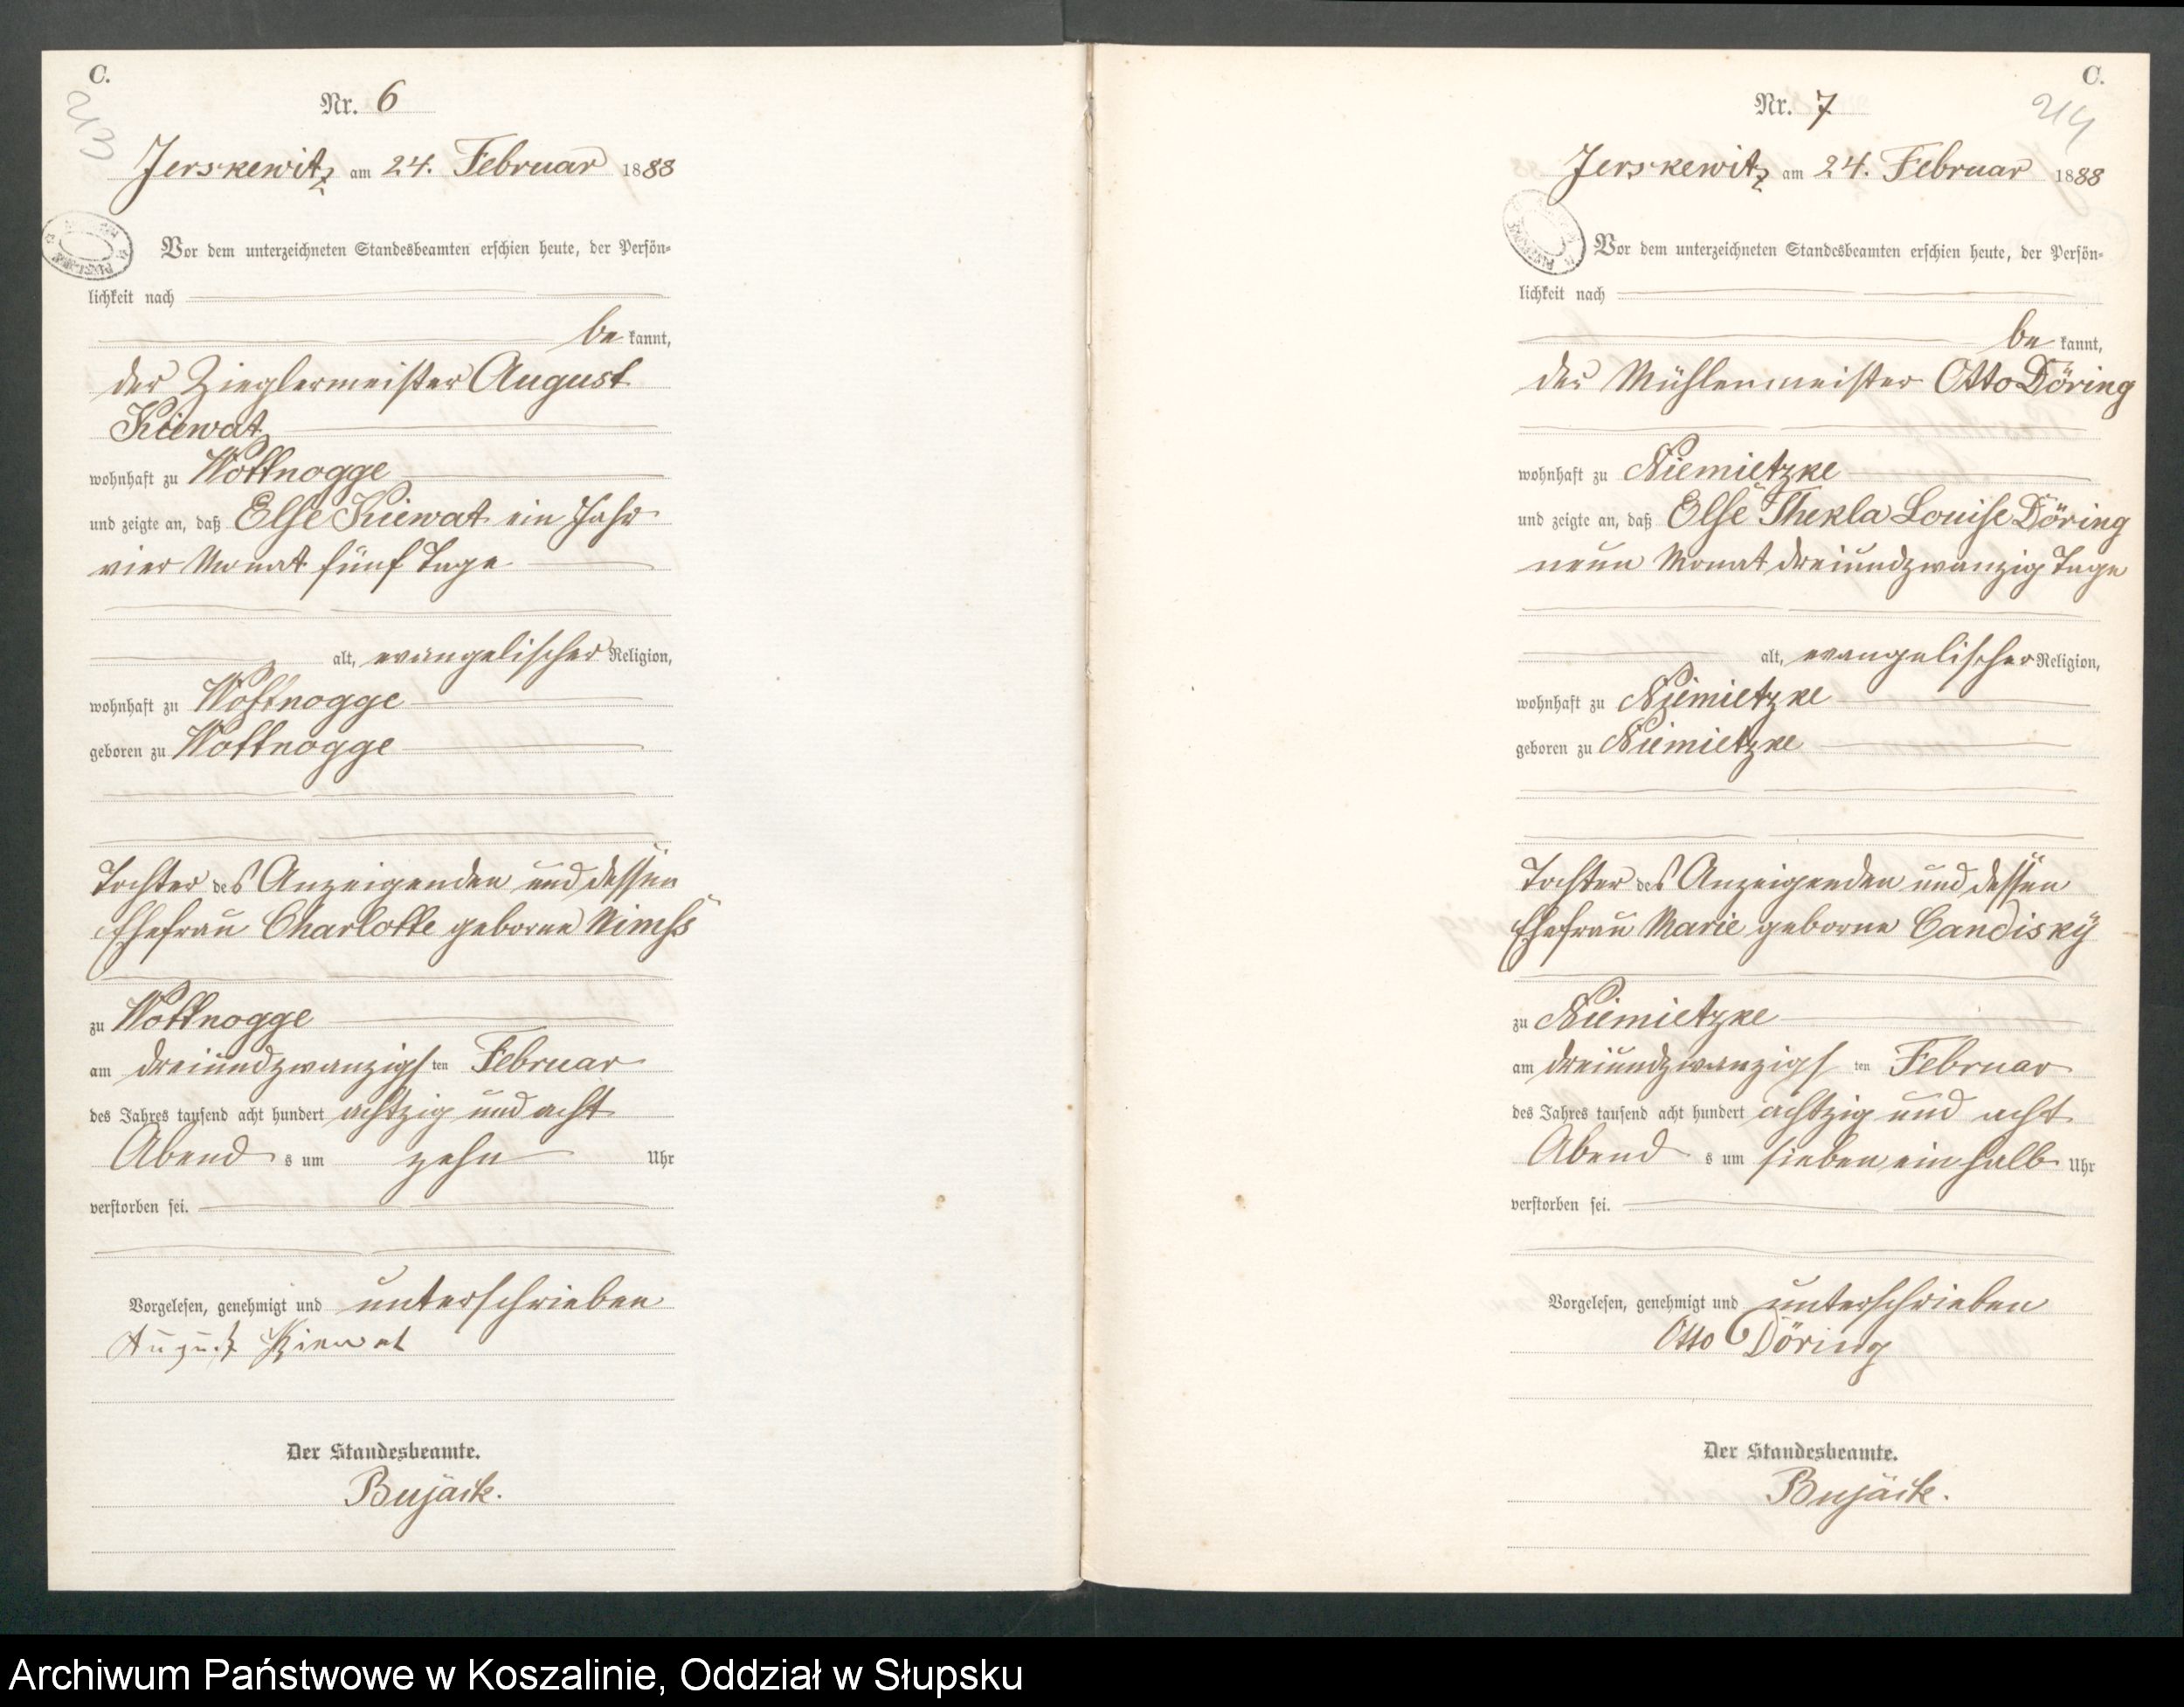 C.
213
Nr. 6
Jerskewitz am 24. Februar 1888
Vor dem unterzeichneten Standesbeamten erschien heute, der Persön-
lichkeit nach
be kannt,
der Zieglermeister August
Kiewat
wohnhaft zu Wottnogge
und zeigte an, daß Else Kiewat ein Jahr
vier Monat fünf Tage
alt, evangelischer Religion,
wohnhaft zu Wottnogge
geboren zu Wottnogge
Tochter des Anzeigenden und dessen
Ehefrau Charlotte geborne
zu Wottnogge
am dreiundzwanzigsten Februar
des Jahres tausend acht hundert achtzig und acht
Abend s um zehn Uhr
verstorben sei.
Vorgelesen, genehmigt und unterschrieben
August Kiewat
Der Standesbeamte.
Bujäck.
C.
214
Nr. 7
Jerskewitz am 24. Februar 1888
Vor dem unterzeichneten Standesbeamten erschien heute, der Persön-
lichkeit nach
be kannt,
der Mühlenmeister Otto Döring
wohnhaft zu Niemietzke
und zeigte an, daß Else Thekla Louise Döring
neun Monat dreiundzwanzig Tage
alt, evangelischer Religion,
wohnhaft zu Niemietzke
geboren zu Niemietzke
Tochter des Anzeigenden und dessen
Ehefrau Marie geborne Candisky
zu Niemietzke
am dreiundzwanzigsten Februar
des Jahres tausend acht hundert achtzig und acht
Abend s um sieben ein halb Uhr
verstorben sei.
Vorgelesen, genehmigt und unterschrieben
Otto Döring
Der Standesbeamte.
Bujäck.
Archiwum Państwowe w Koszalinie, Oddział w Słupsku